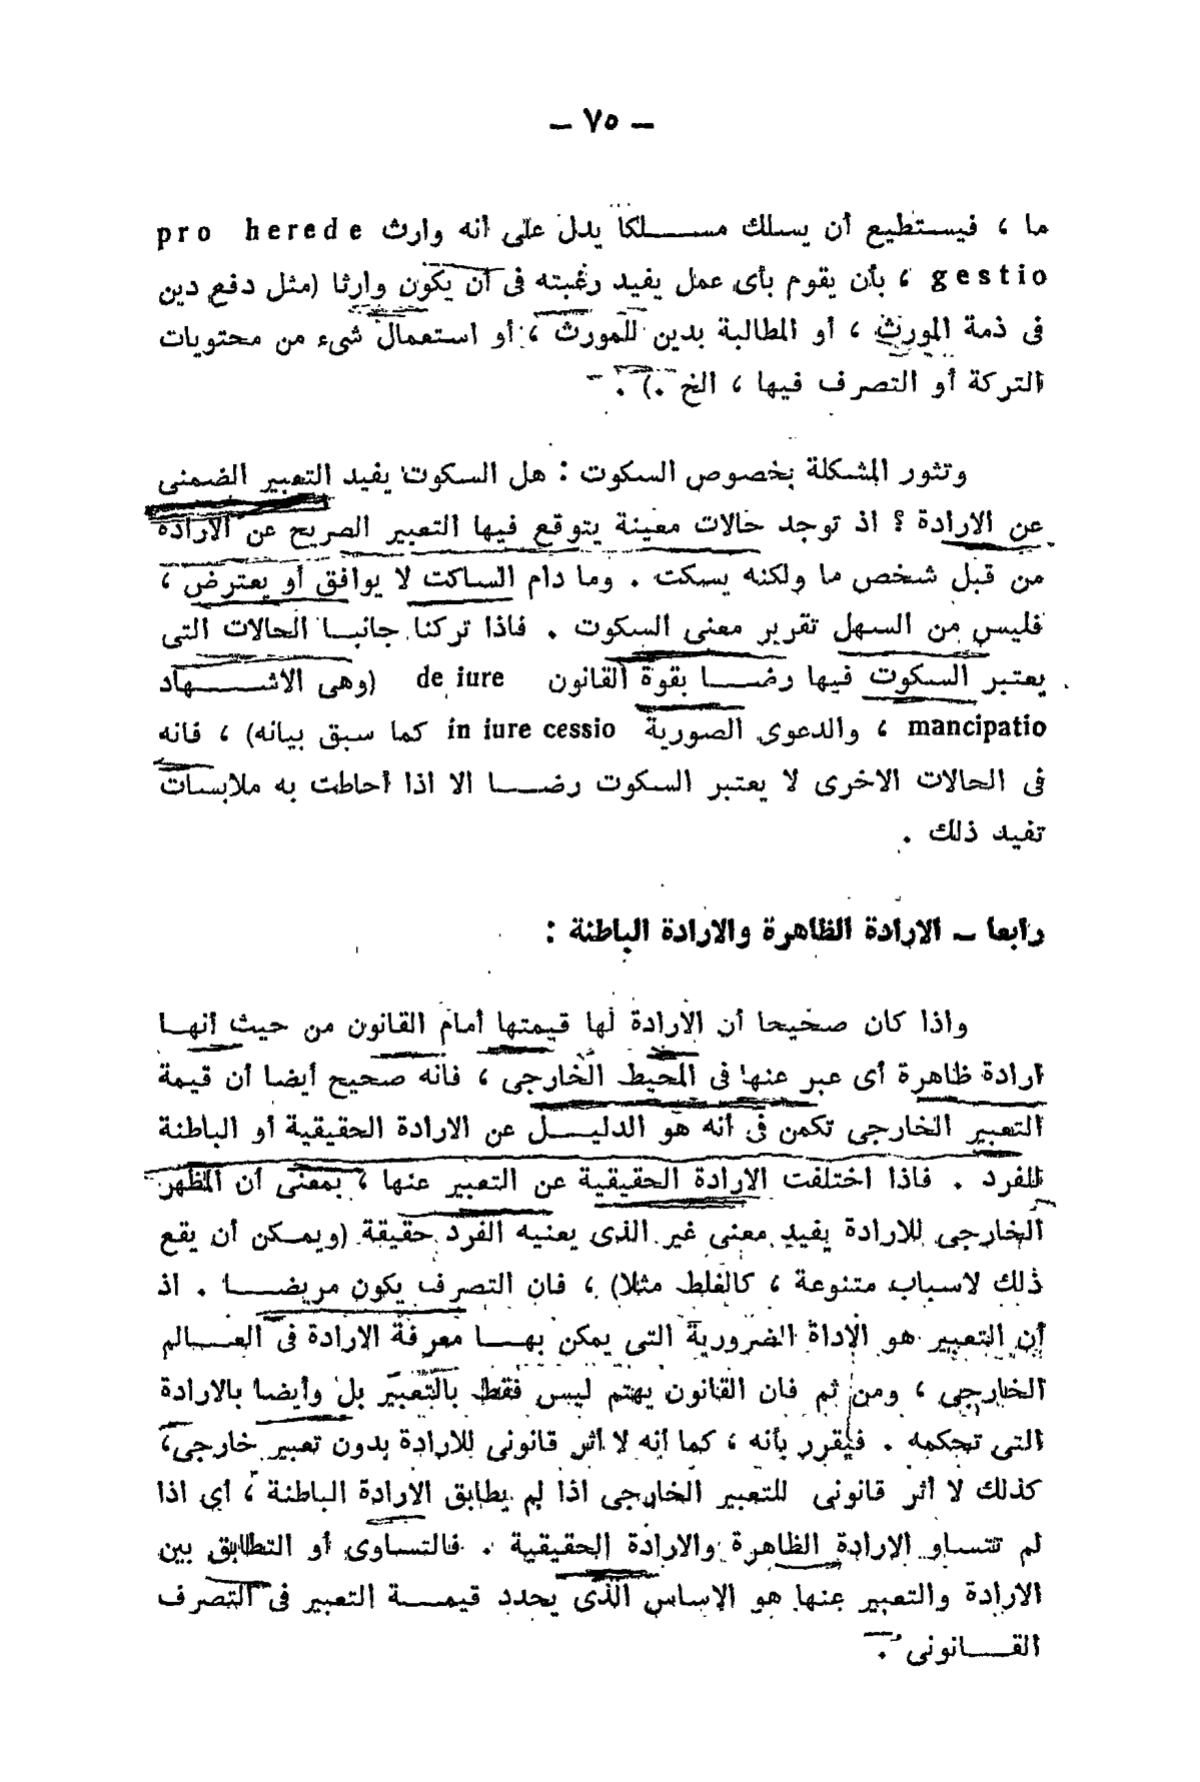 — ٧٥ —
ما ، فيستطيع أن يسلك مسلكا يدل على أنه وارث pro herede
gestio ، بأن يقوم بأى عمل يفيد رغبته فى أن يكون وارثا (مثل دفع دين
فى ذمة المورث ، أو المطالبة بدين للمورث ، أو استعمال شىء من محتويات
التركة أو التصرف فيها ، الخ .) .
وتثور المشكلة بخصوص السكوت : هل السكوت يفيد التعبير الضمنى
عن الارادة ؟ اذ توجد حالات معينة يتوقع فيها التعبير الصريح عن الارادة
من قبل شخص ما ولكنه يسكت . وما دام الساكت لا يوافق أو يعترض ،
فليس من السهل تقرير معنى السكوت . فاذا تركنا جانبا الحالات التى
يعتبر السكوت فيها رضا بقوة القانون de iure (وهى الاشهاد
mancipatio ، والدعوى الصورية in iure cessio كما سبق بيانه) ، فانه
فى الحالات الاخرى لا يعتبر السكوت رضا الا اذا أحاطت به ملابسات
تفيد ذلك .
رابعا – الارادة الظاهرة والارادة الباطنة :
واذا كان صحيحا أن الارادة لها قيمتها أمام القانون من حيث أنها
ارادة ظاهرة أى عبر عنها فى المحيط الخارجى ، فانه صحيح أيضا أن قيمة
التعبير الخارجى تكمن فى أنه هو الدليل عن الارادة الحقيقية أو الباطنة
للفرد . فاذا اختلفت الارادة الحقيقية عن التعبير عنها ، بمعنى أن المظهر
الخارجى للارادة يفيد معنى غير الذى يعنيه الفرد حقيقة (ويمكن أن يقع
ذلك لاسباب متنوعة ، كالغلط مثلا) ، فان التصرف يكون مريضا . اذ
أن التعبير هو الاداة الضرورية التى يمكن بها معرفة الارادة فى العالم
الخارجى ، ومن ثم فان القانون يهتم ليس فقط بالتعبير بل وأيضا بالارادة
التى تحكمه . فيقرر بأنه ، كما أنه لا أثر قانونى للارادة بدون تعبير خارجى،
كذلك لا أثر قانونى للتعبير الخارجى اذا لم يطابق الارادة الباطنة ، أي اذا
لم تتساو الارادة الظاهرة والارادة الحقيقية . فالتساوى أو التطابق بين
الارادة والتعبير عنها هو الاساس الذى يحدد قيمة التعبير فى التصرف
القانونى .